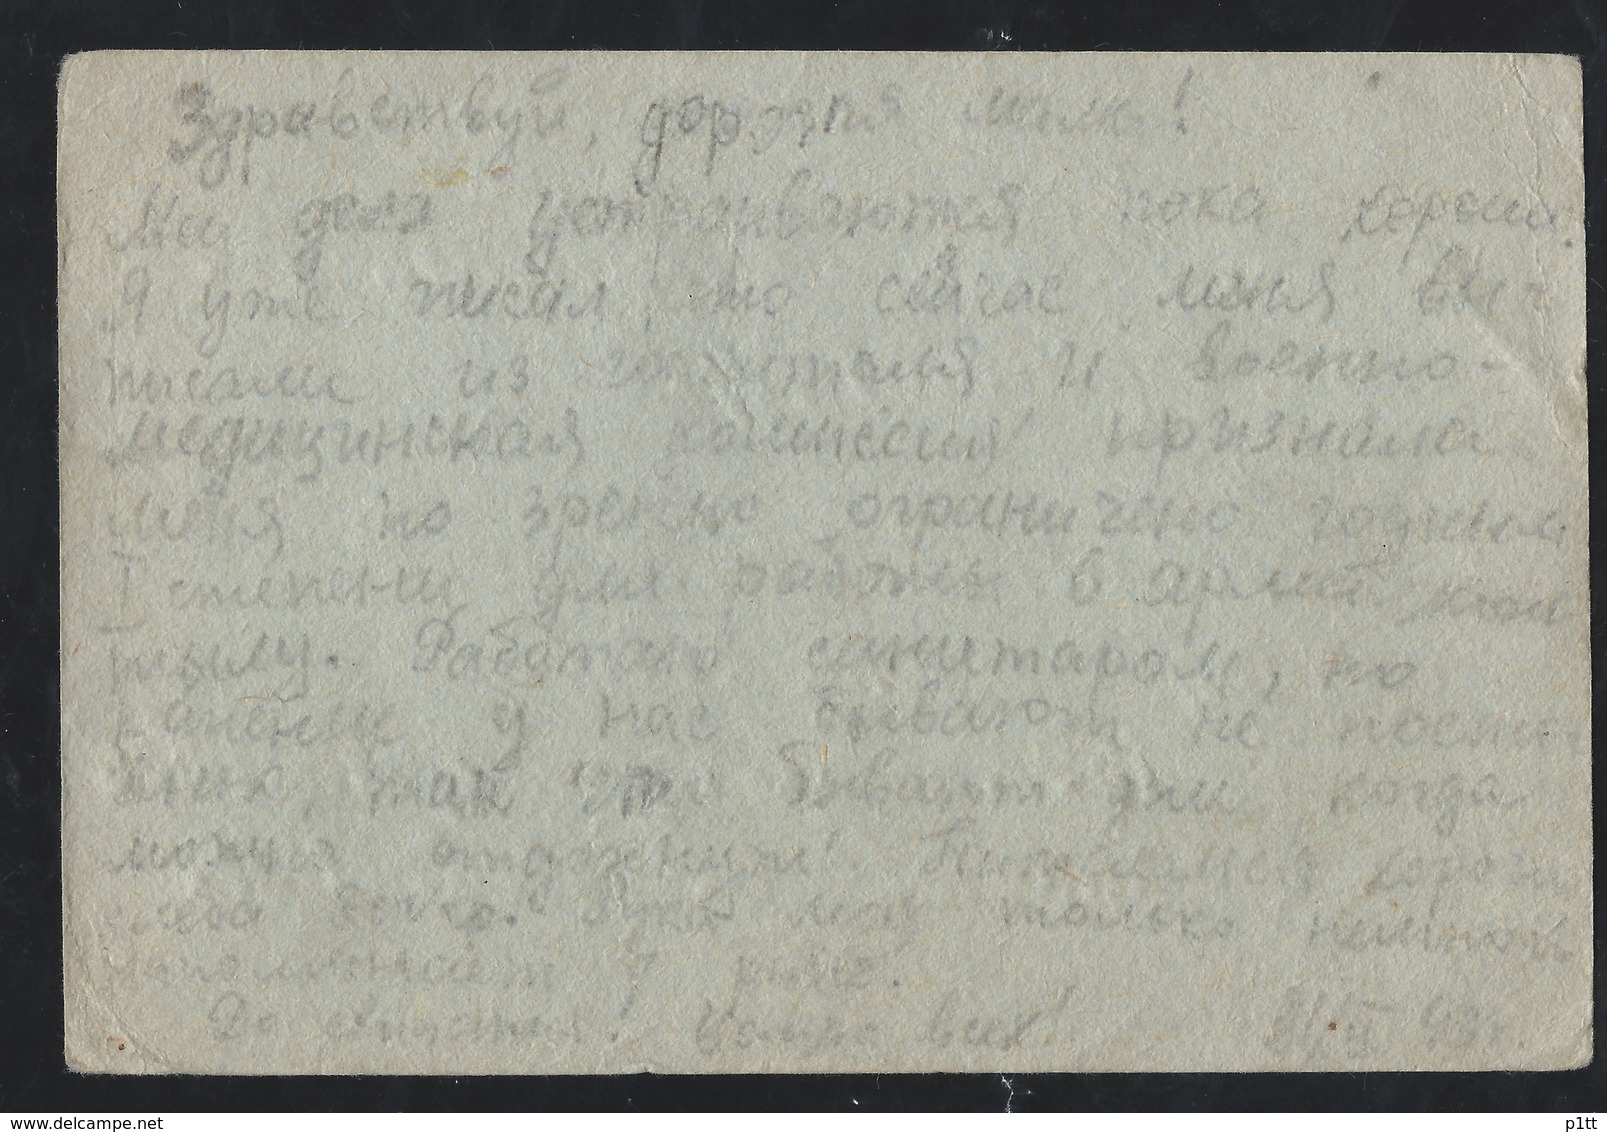 Здравствуй, дорогая мама!
Мои дела устраиваются пока хорошо.
Я уже писал, что сейчас меня вы-
писали из госпиталя и военно-
медицинская комиссия признала
меня по зрению ограничено годным
I степени для работы в армейском
тылу. Работаю санитаром, но
раненые у нас бывают не
так что бывают дни когда
можно отдохнуть. Питаемся
только немного
напоминает
До свидания! Целую всех! 43 г.
www.delcampe.net
p1tt